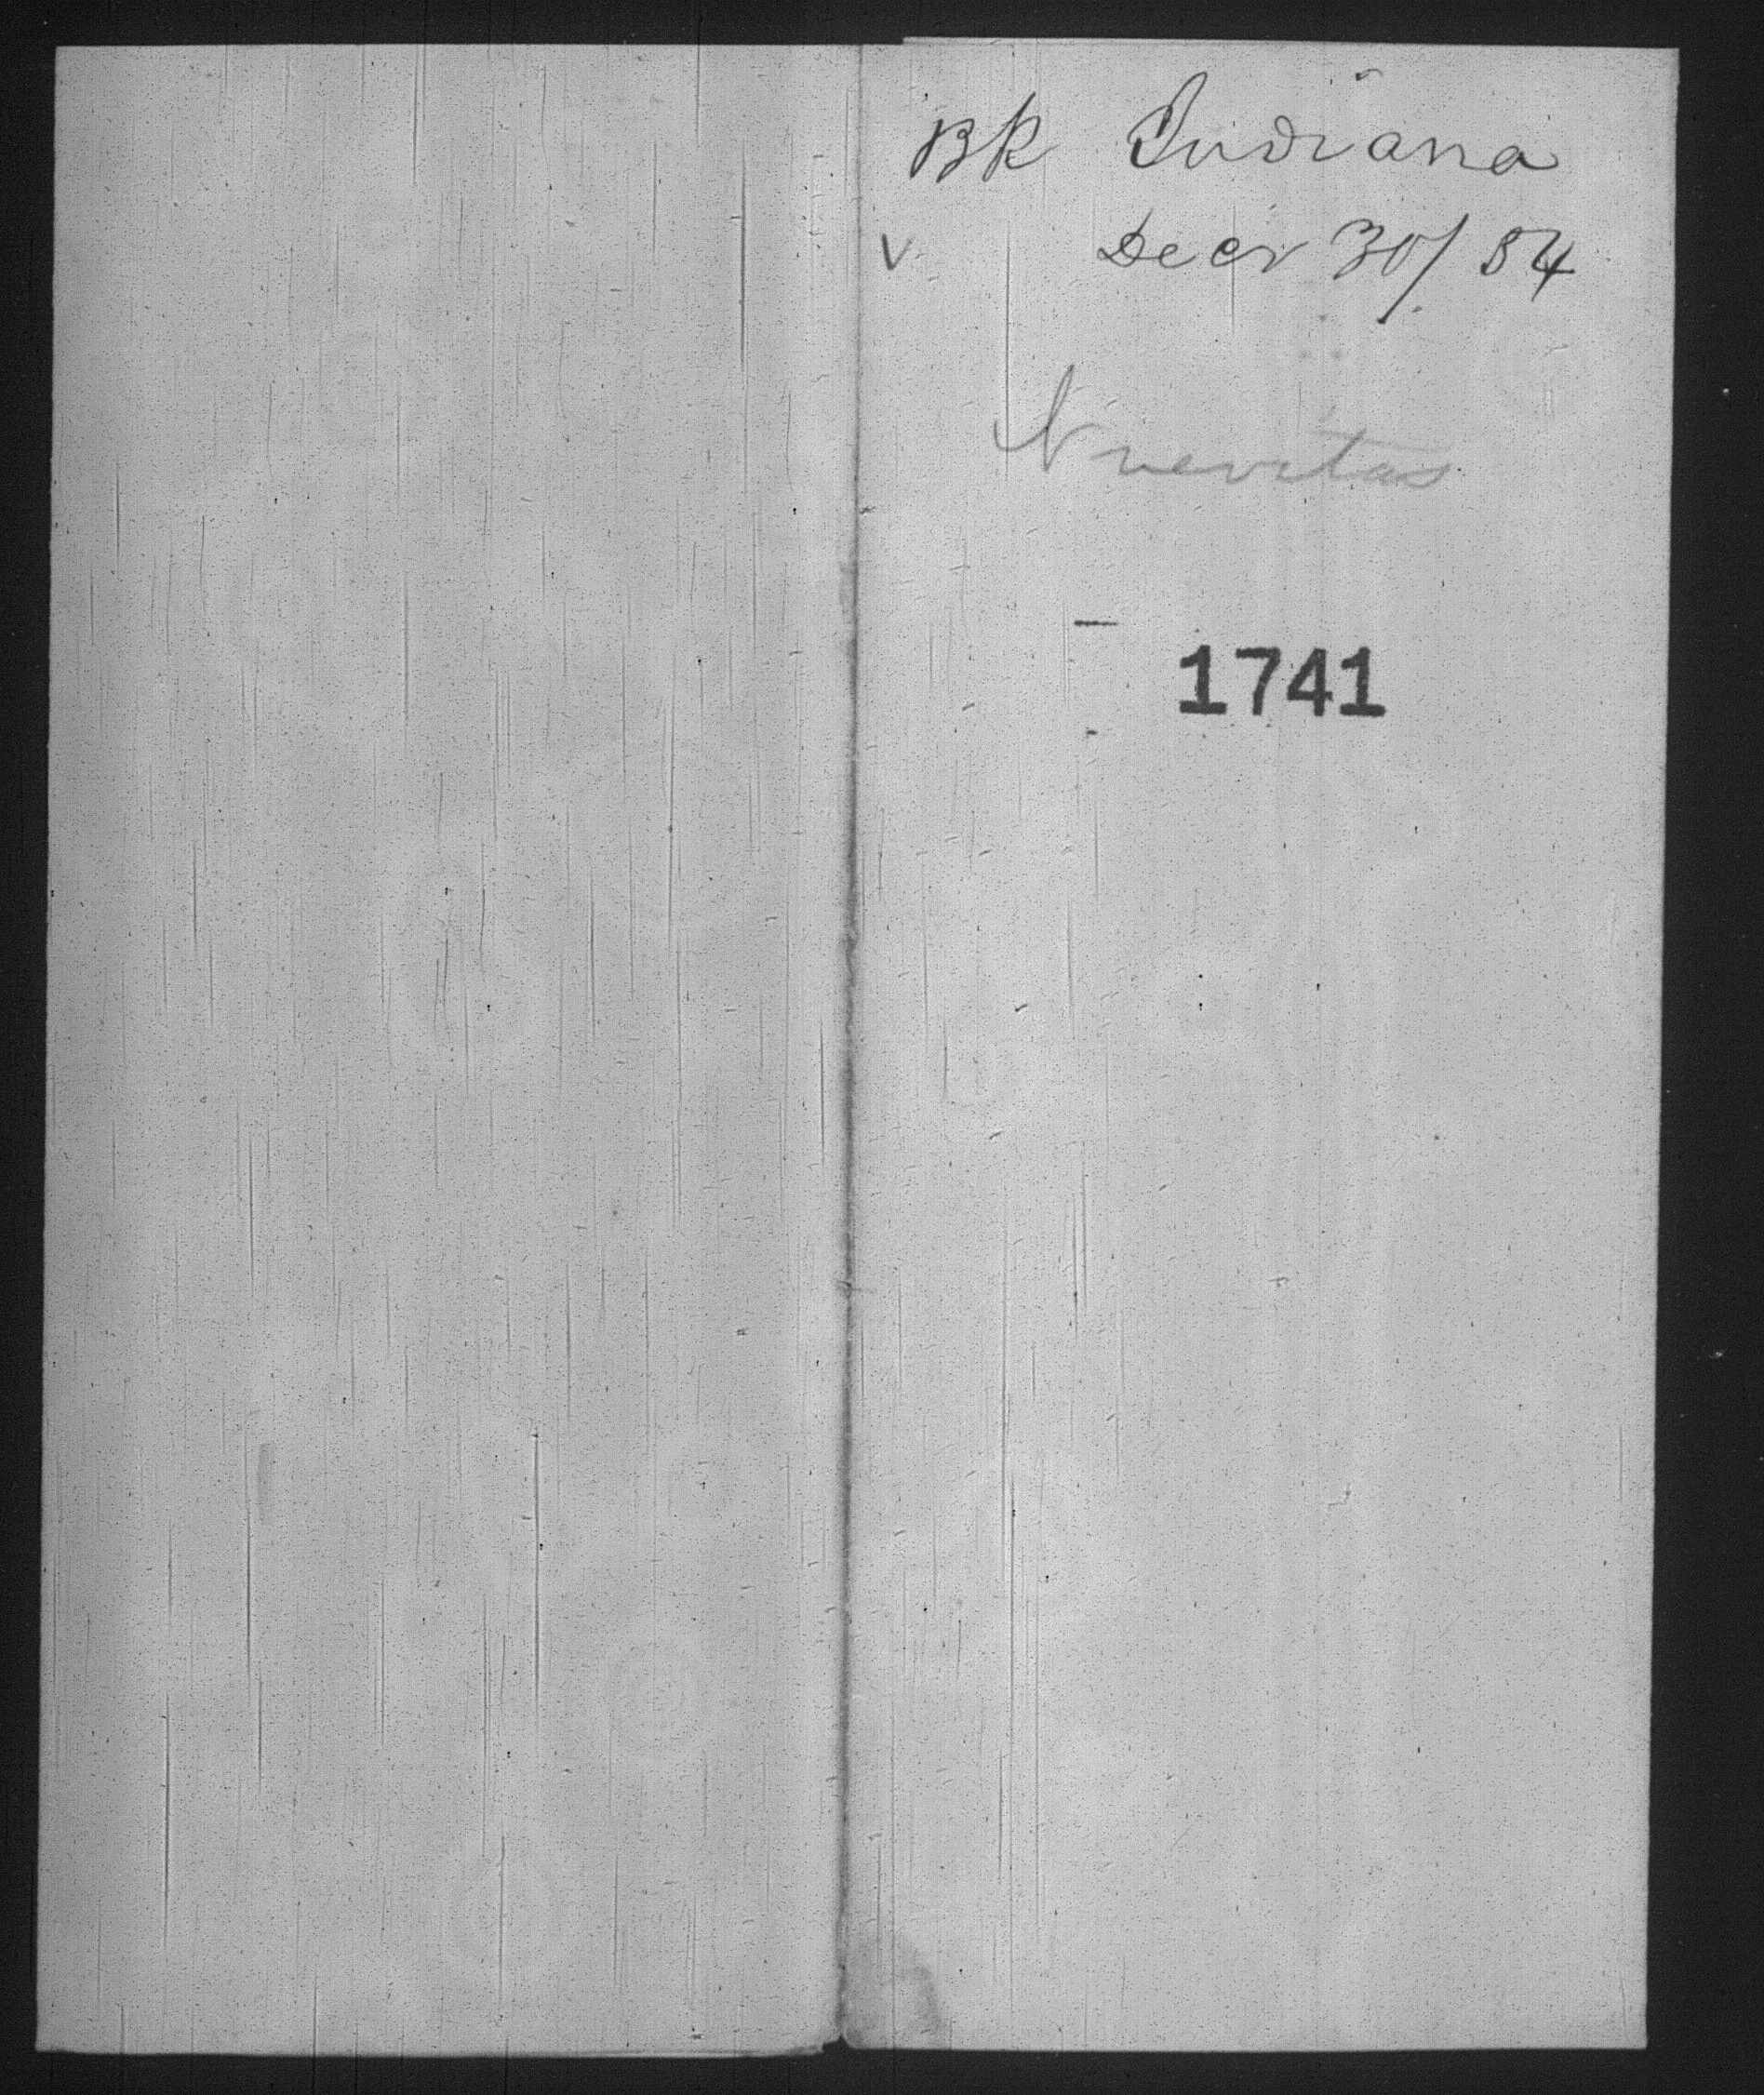 BK Indiana
v Decr 30/ 84
Nuevitas
1741